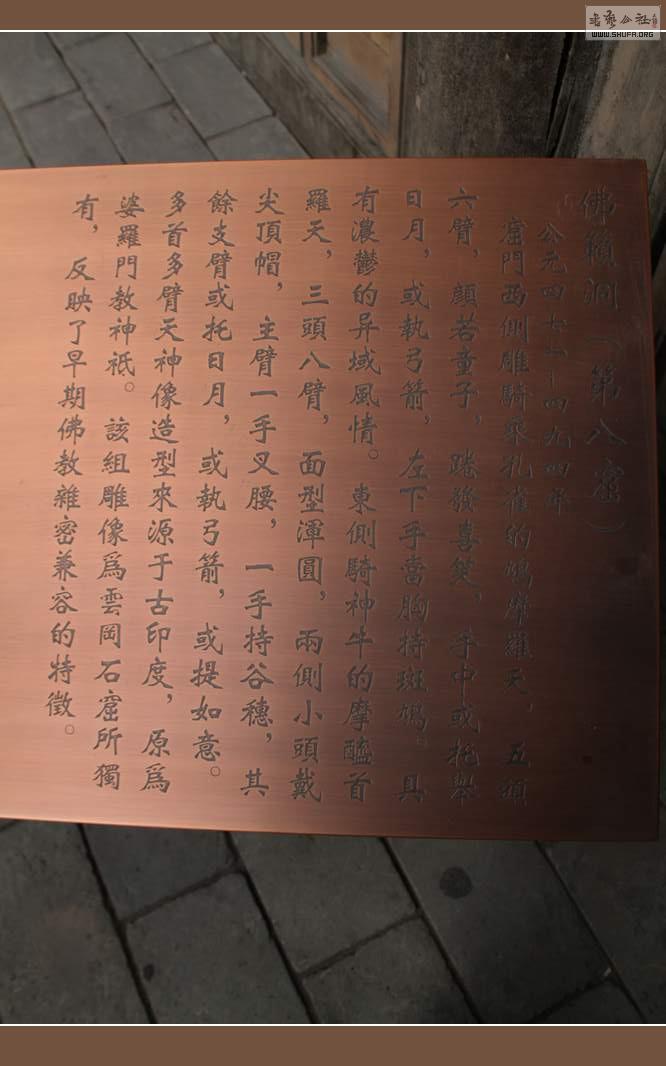 佛籟洞（第八窟）
公元四七一－四九四年
窟門西側雕騎乘孔雀的鳩摩羅天，五頭
六臂，顔若童子，踡發喜笑，手中或托舉
日月，或執弓箭，左下手當胸持斑鳩。具
有濃鬱的异域風情。東側騎神牛的摩醯首
羅天，三頭八臂，面型渾圓，兩側小頭戴
尖頂帽，主臂一手叉腰，一手持谷穗，其
餘支臂或托日月，或執弓箭，或提如意。
多首多臂天神像造型來源于古印度，原爲
婆羅門教神祇。該組雕像爲雲岡石窟所獨
有，反映了早期佛教雜密兼容的特徵。
書藝公社
WWW.SHUFA.ORG